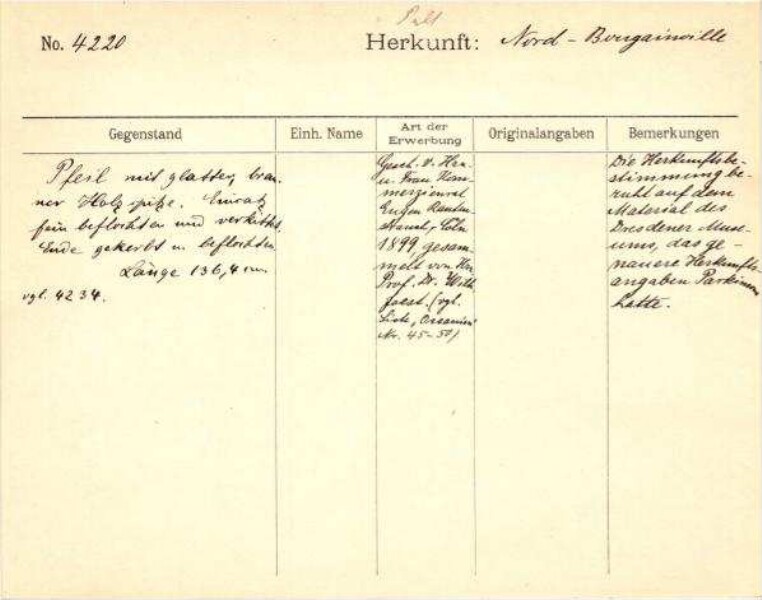 No. 4220
Herkunft: Nord-Bougainville
Gegenstand
Einh. Name
Art der
Erwerbung
Originalangaben
Bemerkungen
Pfeil mit glatter, brau-
ner Holzspitze. Einsatz
fein beflochten und verkittet.
Ende gekerbt u. beflochten.
Länge 136,4 cm.
vgl. 4234.
Gesch. v. Hrn.
u. Frau Kom-
merzienrat
Eugen Rauten-
strauch, Cöln
1899, gesam-
melt von Hn.
Prof. Dr. Wilh.
Joest. (vgl.
Liste „Ozeanien"
No. 45-50)
Die Herkunftsbe-
stimmung be-
ruht auf dem
Material des
Dresdener Muse-
ums, das ge-
nauere Herkunfts-
angaben Parkinsons
hatte.